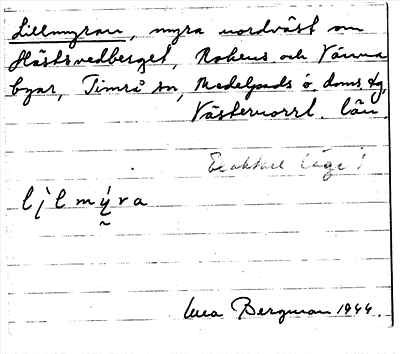 Lillmyran, myra nordväst om
Hästsvedberget, Rokens och Vänna
byar, Timrå sn, Medelpads ö. doms. tg,
Västernorrl. län.
Exaktare läge!
lilmýra
Bergman 1944.